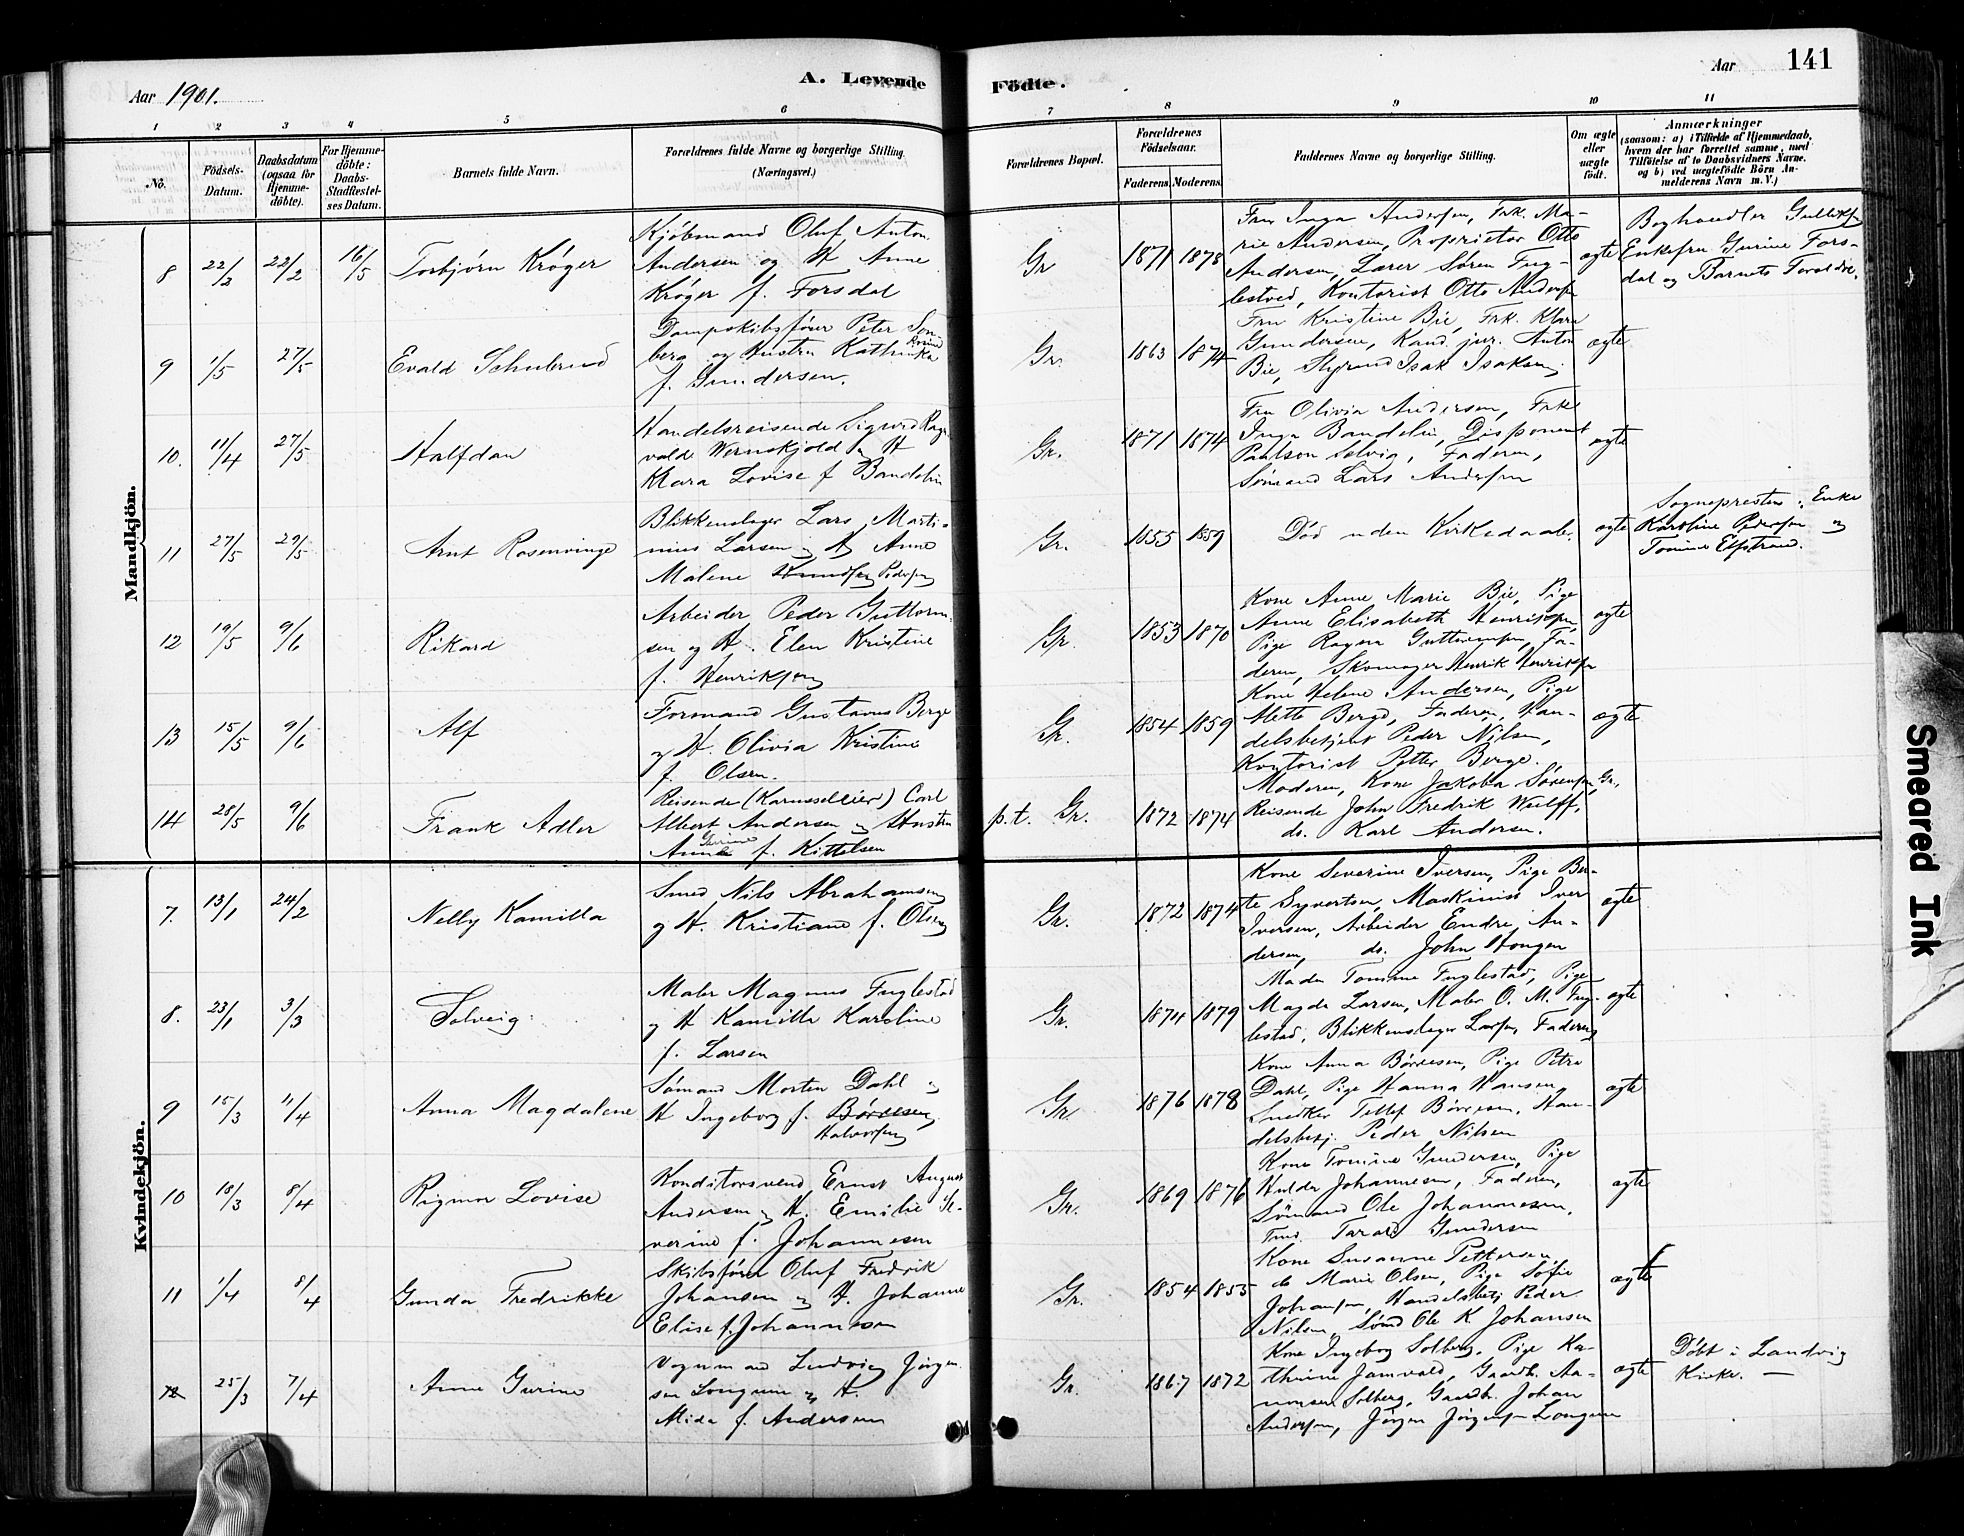 Aar 1901.
A. Levende
Födte.
Aar
141
1
2
3
4
5
6
7
8
9
10
11
No.
Födsels-
Datum.
Daabsdatum
(ogsaa for
Hjemme-
döbte).
For Hjemme-
döbte:
Daabs-
Stadfæstel-
ses Datum.
Barnets fulde Navn.
Forældrenes fulde Navne og borgerlige Stilling.
(Næringsvei.)
Forældrenes Bopæl.
Forældrenes
Födselsaar.
Faderens.
Moderens.
Faddernes Navne og borgerlige Stilling.
Om ægte
eller
uægte
födt.
Anmærkninger
(saasom: a) i Tilfælde af Hjemmedaab,
hvem der har forrettet samme, med
Tilföielse af to Daabsvidners Navne.
og b) ved uægtefödte Börn An-
melderens Navn m. V.)
Mandkjön.
8
22/2
22/2
16/5
Torbjørn Krøger
Kjøbmand Oluf Anton
Andersen og H Anne
Krøger f. Forsdal
Gr
1871
1878
Fru Inga Andersen, Frk. Ma-
rie Andersen, Proprietær Otto
Andersen, Lærer Søren Fug-
lestved, Kontorist Otto Andersen
ægte
Boghandler
Enkefru Gurine Fors-
dal og Barnets Forældre.
9
1/5
27/5
Evald Schulerud
Dampskibsfører Peter Son-
berg og Hustru Kathinka
f. Gundersen.
Gr.
1863
1874
Fru Kristine Bie, Frk. Klara
Gundersen, Kand. jur. Anton
Bie, Styrmand Isak Isaksen
ægte
10.
11/4
27/5
Halfdan
Handelsreisende Sigurd Rag-
vald Wernskjold og H
Klara Lovise f Bandelin
Gr.
1871
1874
Fru Olivia Andersen, Frk
Inga Bandelin, Disponent
Paulson Solvig, Faderen,
Sømand Lars Andersen
ægte
11
27/5
29/5
Arnt Rosenvinge
Blikkenslager Lars Marti-
nius Larsen og H Anne
Malene Knudsen Pedersen
Gr.
1855
1859
Død uden Kirkedaab.
ægte
Sognepresten; Enke
Karoline Pedersen og
Tomine Elfstrand.
12
19/5
9/6
Rikard
Arbeider Peder Guttorm-
sen og H. Elen Kristine
f. Henriksen
Gr.
1853
1870
Kone Anne Marie Bie, Pige
Anne Elisabeth Henriksen,
Pige Ragna Guttormsen, Fa-
deren, Skomager Henrik Henriksen
ægte
13
15/5
9/6
Alf
Formand Gustavus Berge
og H. Olivia Kristine
f. Olsen.
Gr.
1854
1859
Kone Helene Andersen, Pige
Mette Berge, Faderen, Han-
delsbetjent Peder Nilsen,
Kontorist Petter Berge.
ægte
14
28/5
9/6
Frank Adler
Reisende (Karussellier) Carl
Albert Andersen og Hustru
Gurine
Anne f. Kittelsen
p.t. Gr.
1872
1874
Moderen, Kone Jakoba Sørensen, Gr.
Reisende John Fredrik Wulff,
do. Karl Andersen.
Kvindekjön.
7.
13/1
24/2
Nelly Kamilla
Smed Nils Abrahamsen
og H. Kristiane f. Olsen
Gr.
1872
1874
Kone Severine Iversen, Pige Ber-
te Syvertsen, Maskinist Iver
Iversen, Arbeider Endre An-
dersen, do. John Haugen
ægte
8.
23/1
3/3
Solveig
Maler Magnus Fuglestad
og H Kamilla Karoline
f. Larsen
Gr.
1874
1879
Mada Tomine Fuglestad, Pige
Magda Larsen, Maler O. M. Fug-
lestad, Blikkenslager Larsen, Faderen
ægte
9
15/3
11/4
Anna Magdalene
Sømand Morten Dahl og
H Ingeborg f. Børresen
Halvorsen
Gr.
1876
1878
Kone Anna Børresen, Pige Petra
Dahl, Pige Hanna Hansen,
Snedker Tellef Børresen, Han-
delsbetj. Peder Nilsen
ægte
10
18/3
8/4
Rigmor Lovise
Konditorsvend Ernst August
Andersen og H. Emilie Se-
verine f. Johannesen
Gr.
1869
1876
Kone Tomine Gundersen, Pige
Hulda Johannesen, Faderen,
Sømand Ole Johannesen,
Tarald Gundersen
ægte
11
1/4
8/4
Gunda Fredrikke
Skibsfører Oluf Fredrik
Johansen og H. Johanne
Elise f. Johannesen
Gr.
1854
1855
Kone Susanne Pettersen,
do Marie Olsen, Pige Sofie
Johansen, Handelsbetj Peder
Nilsen, Sømd Ole K Johansen
ægte
12
25/3
7/4
Anne Gurine
Vognmand Ludvig Jørgen-
sen Longum og H.
Mida f. Andersen
Gr.
1867
1872
Kone Ingeborg Solberg, Pige Ka-
thrine Jamvold, Gaardb. Aa-
nonsen Solberg, Gaardb. Johan
Andersen, Jørgen Jørgensen Longum
ægte
Døbt i Landvig
Kirke. —
Smeared Ink